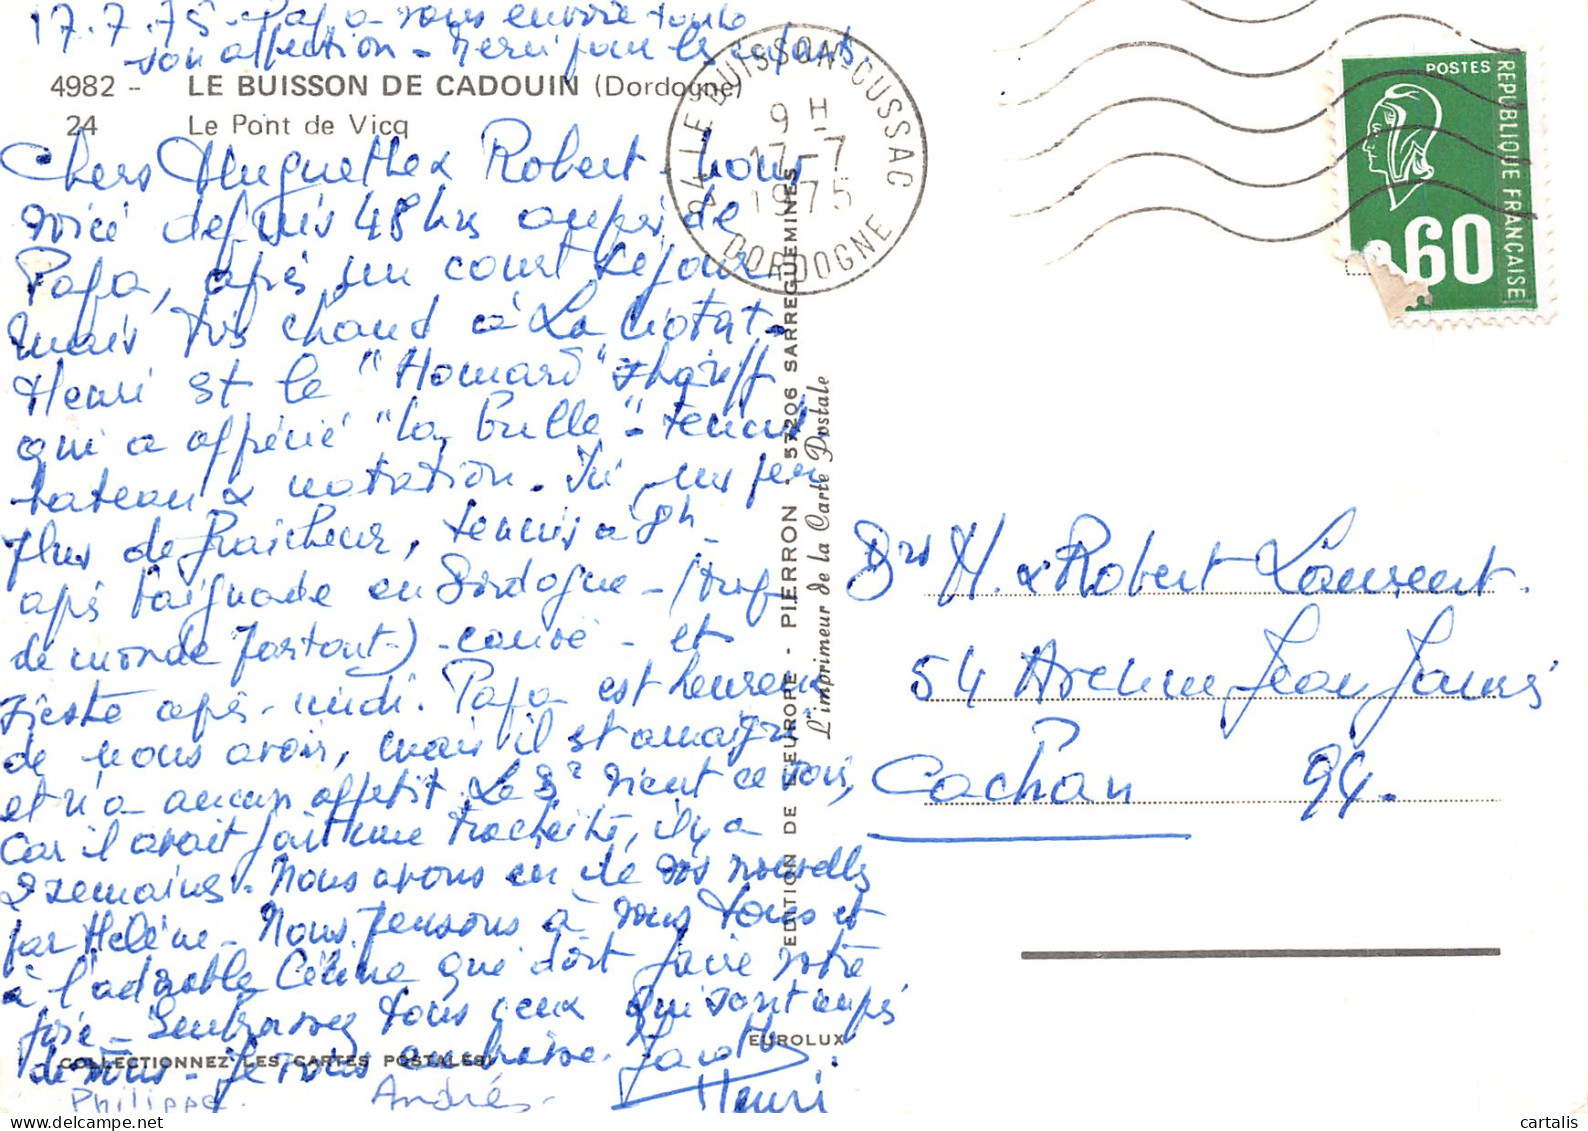 17.7.75 - Papa vous envoie toute
son affection - Merci pour les enfants.
4982 - LE BUISSON DE CADOUIN (Dordogne)
24 Le Pont de Vicq
Chers Huguette & Robert - nous
voici depuis 48 hrs auprès de
Papa, après un court séjour
mais très chaud à La Ciotat -
Henri est le "Homard" Shériff
qui a apprécié "la Bulle" - tennis
bateau & natation. Ici un peu
plus de fraîcheur, tennis à 8h -
après baignade en Dordogne - (trop
de monde partout) - canoë - et
sieste après-midi. Papa est heureux
de nous avoir, mais il est amaigri
et n'a aucun appétit. Le Dr vient ce soir,
car il avait fait une trachéite, il y a
2 semaines. Nous avons eu de vos nouvelles
par Hélène - Nous pensons à vous tous et
à l'adorable Céline qui doit faire votre
joie - Embrassez tous ceux qui sont auprès
de vous - Je vous embrasse.
Henri
Philippe. André -
COLLECTIONNEZ LES CARTES POSTALES!
EUROLUX
EDITION DE L'EUROPE - PIERRON - 57206 SARREGUEMINES
L'imprimeur de la Carte Postale
24 LE BUISSON-CUSSAC
9 H
17-7
1975
DORDOGNE
POSTES
REPUBLIQUE FRANÇAISE
0,60
M. & Robert Laurent.
54 Avenue Jean Jaurès
Cachan 94.
delcampe.net
cartalis